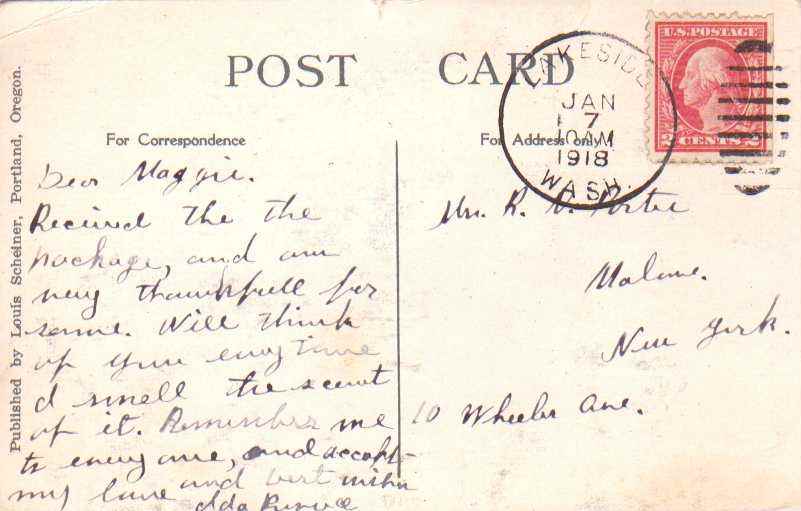 POST CARD
For Correspondence
For Address only
Published by Louis Scheiner, Portland, Oregon.
U.S. POSTAGE
2 CENTS 2
LAKESIDE
JAN
7
10AM
1918
WASH.
Dear Maggie.
Recieved the the
package, and am
very thankfull for
same. Will think
of you every time
I smell the scent
of it. Remember me
to every one, and accept
my love and best wishes
Ida
Mrs. R. Porter
Malone.
New York.
10 Wheeler Ave.